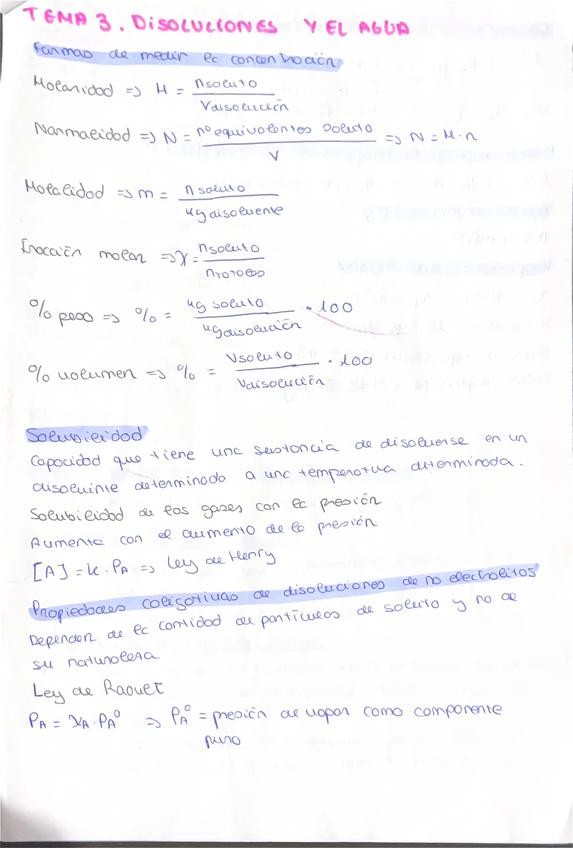 TEMA 3. DISOLUCIONES Y EL AGUA
Formas de medir la concentración
Molaridad => M = n soluto / V disolución
Normalidad => N = nº equivalentes soluto / V => N = M · n
Molalidad => m = n soluto / kg disolvente
Fracción molar => χ = n soluto / n totales
% peso => % = kg soluto / kg disolución · 100
% volumen => % = V soluto / V disolución · 100
Solubilidad
Capacidad que tiene una sustancia de disolverse en un
disolvente determinado a una temperatura determinada.
Solubilidad de los gases con la presión
Aumenta con el aumento de la presión
[A] = k · PA => Ley de Henry
Propiedades coligativas de disoluciones de no electrolitos
Dependen de la cantidad de partículas de soluto y no de
su naturaleza
Ley de Raoult
PA = χA · PA° => PA° = presión de vapor como componente
puro